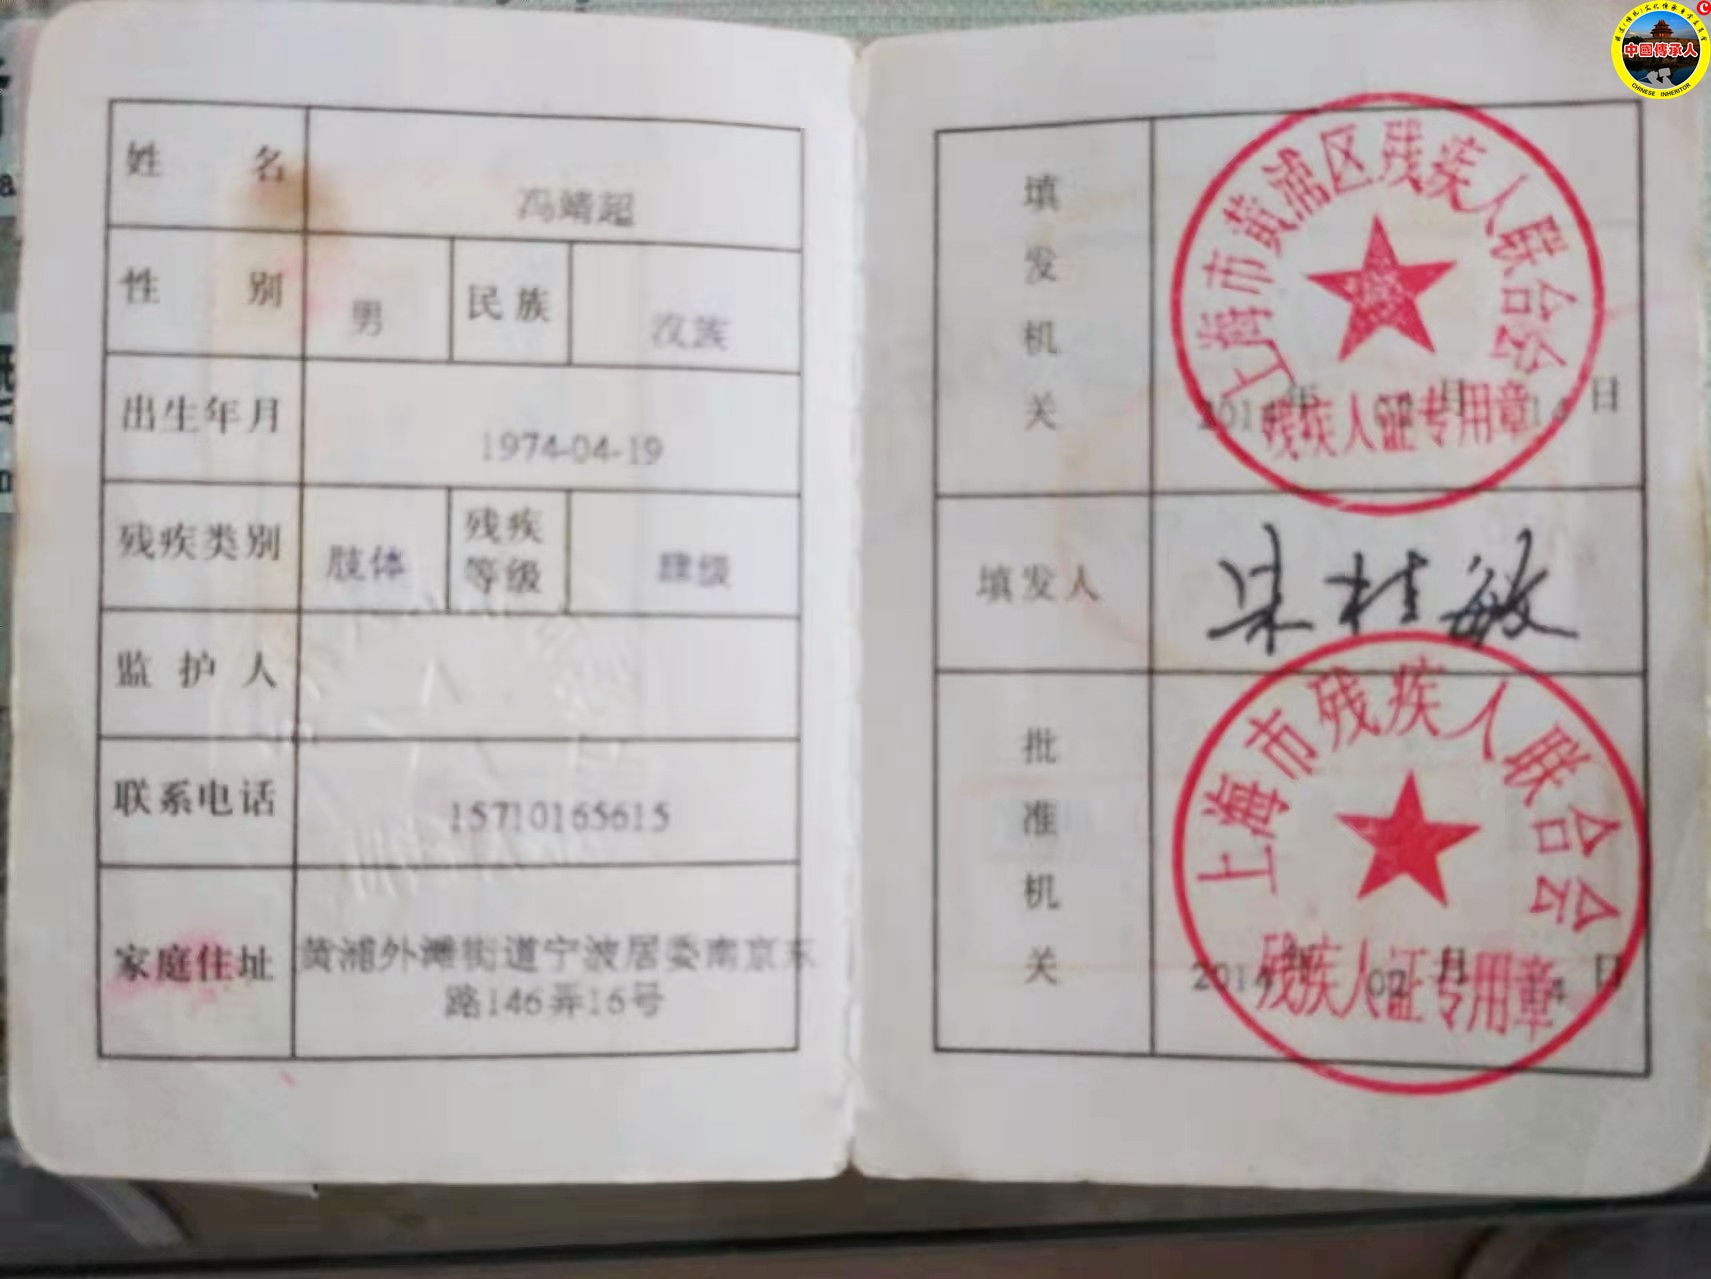 姓 名 冯靖超
性 别 男 民族 汉族
出生年月 1974-04-19
残疾类别 肢体 残疾等级 肆级
监护人
联系电话 15710165615
家庭住址 黄浦外滩街道宁波居委南京东
路146弄16号
填发机关
上海市黄浦区残疾人联合会
年 月 日
残疾人证专用章
填发人 朱桂敏
批准机关
上海市残疾人联合会
年 月 日
残疾人证专用章
中國傳承人
CHINESE INHERITOR